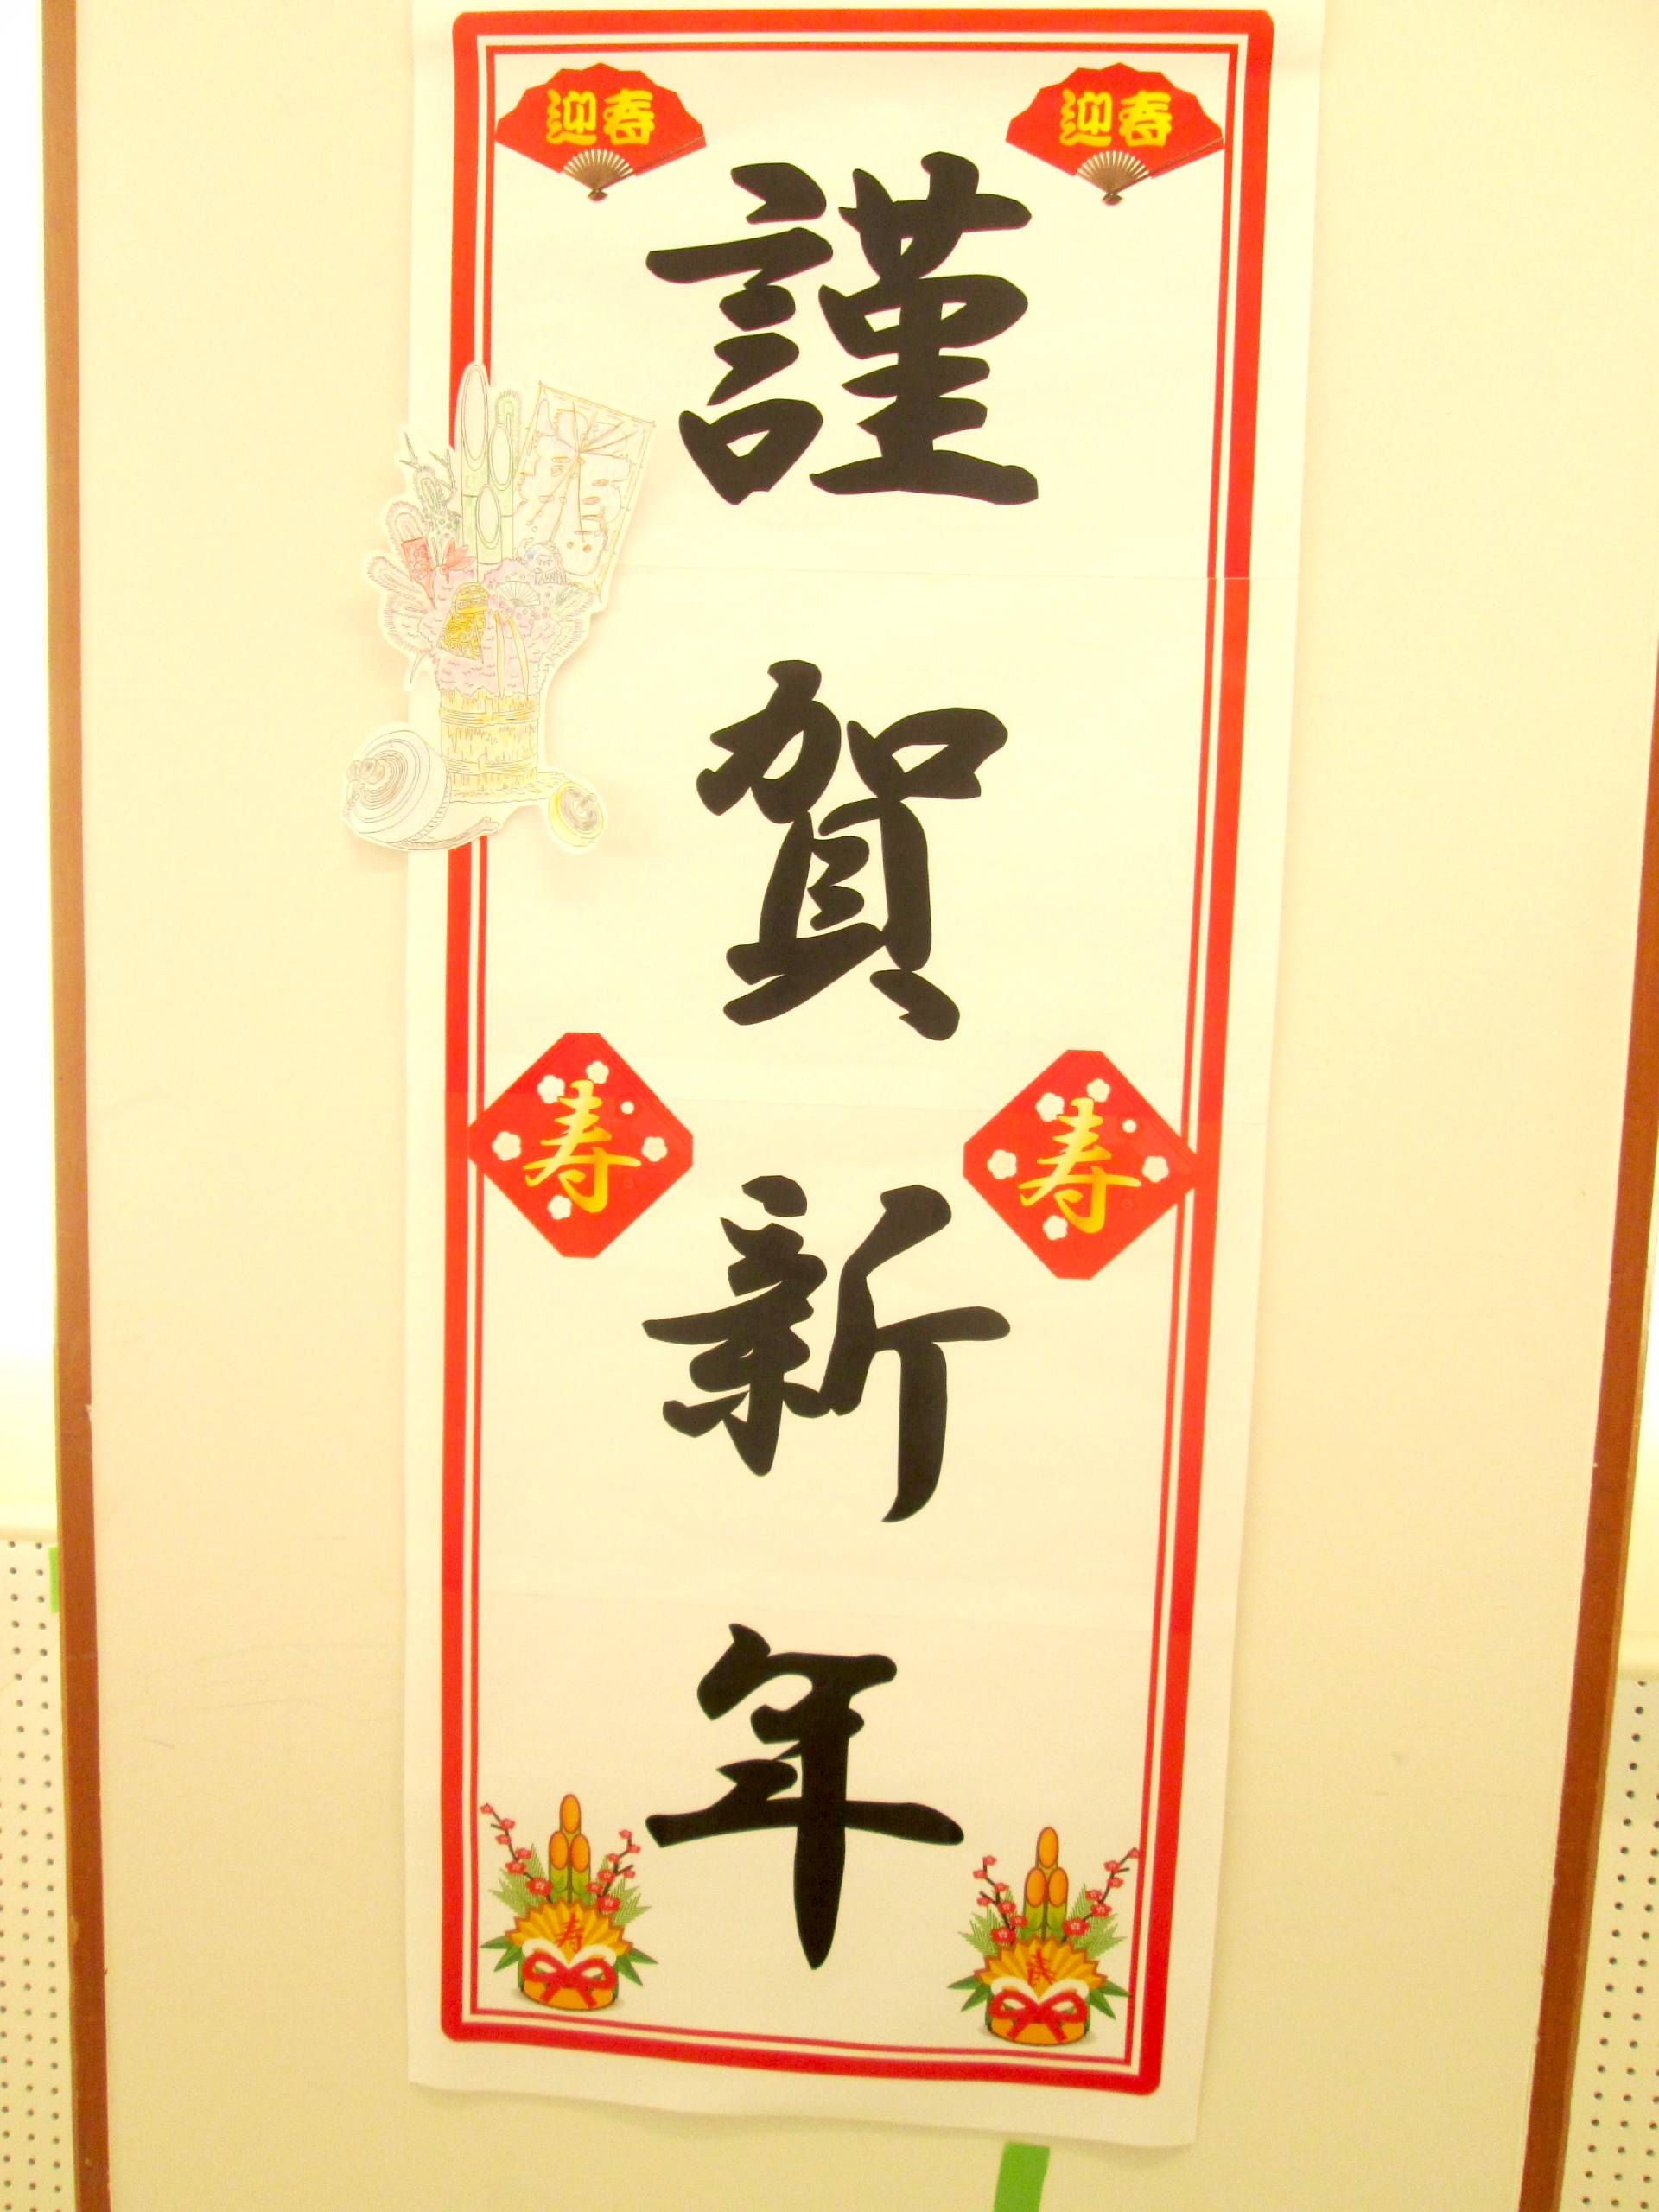 迎春
迎春
謹賀新年
寿
寿
寿
寿